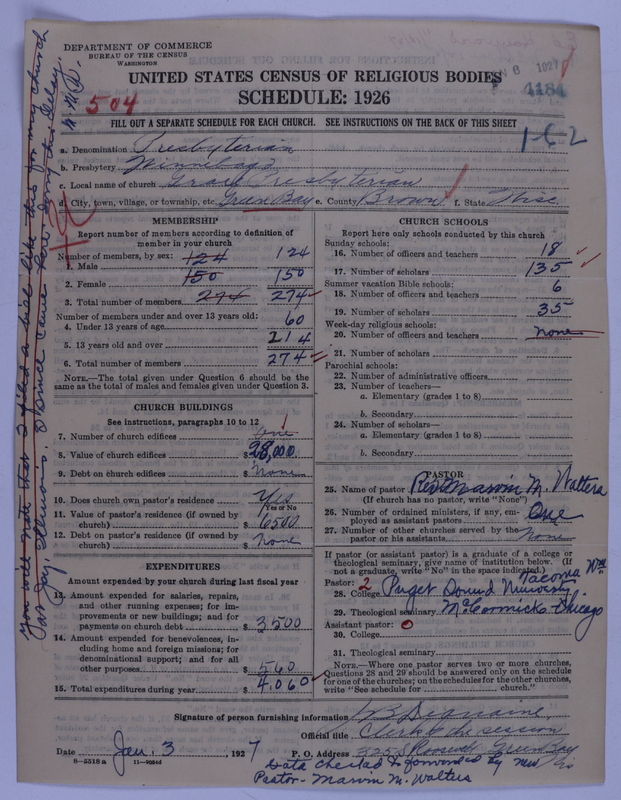 DEPARTMENT OF COMMERCE
BUREAU OF THE CENSUS
WASHINGTON
1927
4184
UNITED STATES CENSUS OF RELIGIOUS BODIES
504
SCHEDULE: 1926
FILL OUT A SEPARATE SCHEDULE FOR EACH CHURCH. SEE INSTRUCTIONS ON THE BACK OF THIS SHEET
1-6-2
a. Denomination Presbyterian
b. Presbytery Winnebago
c. Local name of church Grace Presbyterian
d. City, town, village, or township, etc. Green Bay e. County Brown f. State Wisc
MEMBERSHIP
Report number of members according to definition of
member in your church
Number of members, by sex:
1. Male 124 124
2. Female 150 150
3. Total number of members 274 274
Number of members under and over 13 years old:
4. Under 13 years of age 60
5. 13 years old and over 214
6. Total number of members 274
NOTE.—The total given under Question 6 should be the
same as the total of males and females given under Question 3.
CHURCH BUILDINGS
See instructions, paragraphs 10 to 12
7. Number of church edifices One 1
8. Value of church edifices $ 28,000.
9. Debt on church edifices $ None
10. Does church own pastor's residence Yes
Yes or No
11. Value of pastor's residence (if owned by
church) $ 6500
12. Debt on pastor's residence (if owned by
church) $ None
EXPENDITURES
Amount expended by your church during last fiscal year
13. Amount expended for salaries, repairs,
and other running expenses; for im-
provements or new buildings; and for
payments on church debt $ 3500
14. Amount expended for benevolences, in-
cluding home and foreign missions; for
denominational support; and for all
other purposes $ 560
15. Total expenditures during year $ 4,060
CHURCH SCHOOLS
Report here only schools conducted by this church
Sunday schools:
16. Number of officers and teachers 18
17. Number of scholars 135
Summer vacation Bible schools:
18. Number of officers and teachers 6
19. Number of scholars 35
Week-day religious schools:
20. Number of officers and teachers None
21. Number of scholars
Parochial schools:
22. Number of administrative officers
23. Number of teachers—
a. Elementary (grades 1 to 8)
b. Secondary
24. Number of scholars—
a. Elementary (grades 1 to 8)
b. Secondary
PASTOR
25. Name of pastor Rev Marvin M. Walters
(If church has no pastor, write "None")
26. Number of ordained ministers, if any, em-
ployed as assistant pastors One
27. Number of other churches served by the
pastor or his assistants None
If pastor (or assistant pastor) is a graduate of a college or
theological seminary, give name of institution below. (If
not a graduate, write "No" in the space indicated.)
Tacoma Wn
Pastor: 2
28. College Puget Sound University
29. Theological seminary McCormick-Chicago
Assistant pastor: 0
30. College
31. Theological seminary
NOTE.—Where one pastor serves two or more churches,
Questions 28 and 29 should be answered only on the schedule
for one of the churches; on the schedules for the other churches,
write "See schedule for church."
Signature of person furnishing information
Official title Clerk of the session
Date Jan. 3 1927 P. O. Address 325 S Roosevelt Green Bay
8—5518a 11—9054d
Data checked & forwarded by
Pastor - Marvin M. Walters
You will note that I filed a bill like this for my church